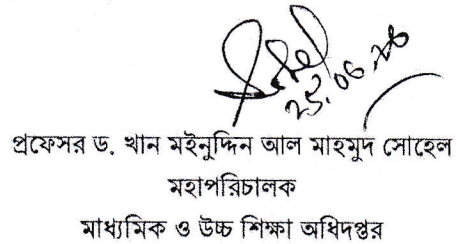 25.06.26
প্রফেসর ড. খান মইনুদ্দিন আল মাহমুদ সোহেল
মহাপরিচালক
মাধ্যমিক ও উচ্চ শিক্ষা অধিদপ্তর